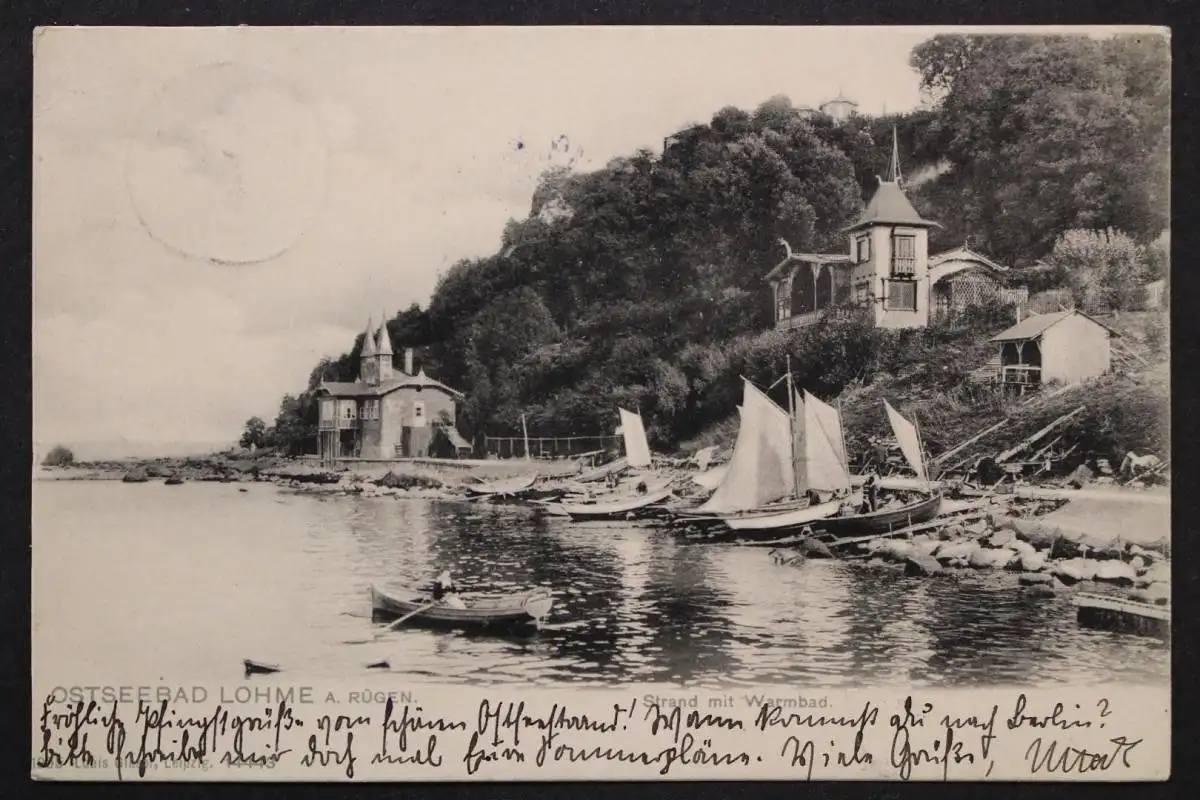 OSTSEEBAD LOHME A. RÜGEN.
Strand mit Warmbad.
Fröhliche Pfingstgrüße vom schönen Ostseestrand! Wann kommst du nach Berlin?
bitte schreib mir doch mal Eure Sommerpläne. Viele Grüße,
Louis Glaser, Leipzig.